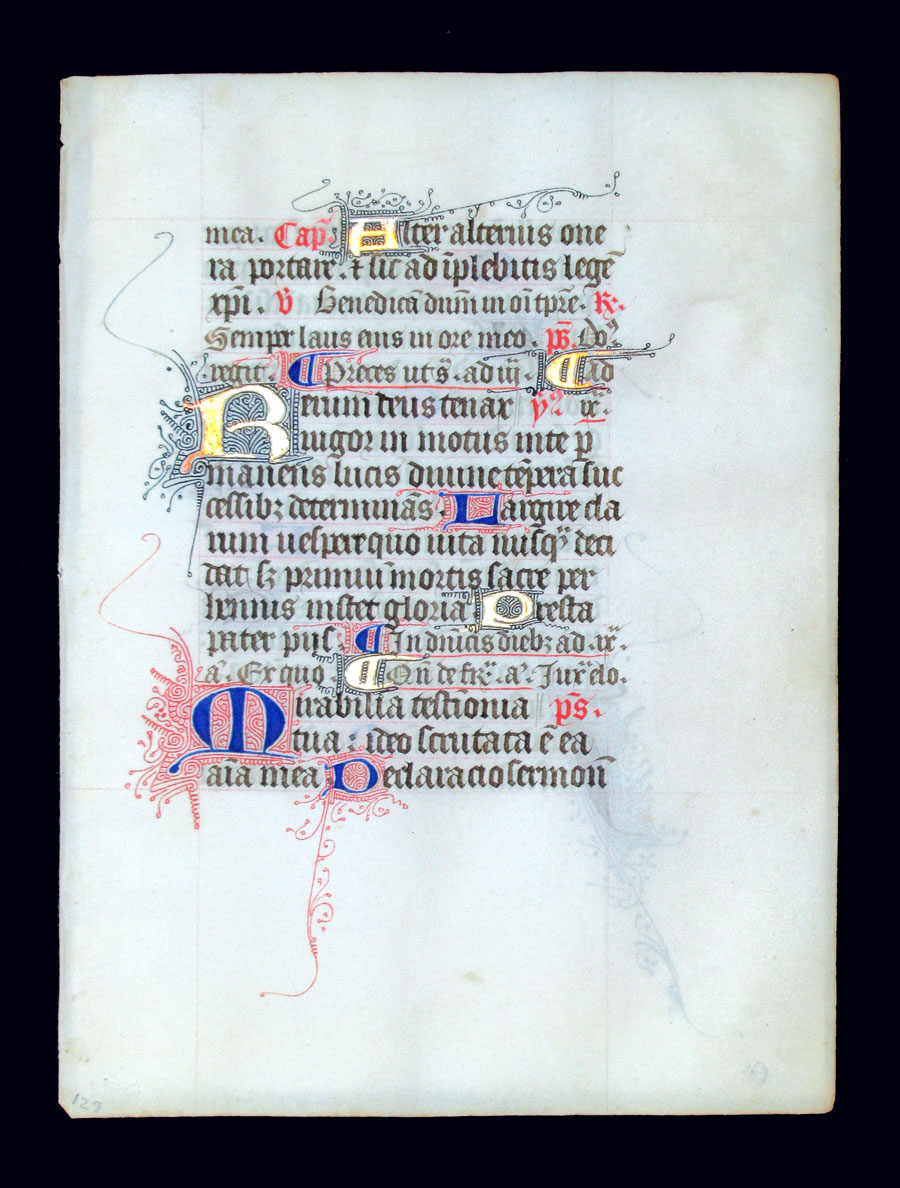 mea. Cap̄. Alter alterius one
ra portate. ⁊ sic ad īplebitis legē
xpi. v̄ Benedicā dn̄m in oī tp̄re. R̄.
Semper laus eius in ore meo. ps̄. Do9
regit. Preces ut s͛. ad iij. Ad
Rerum deus tenax y9 ix.
uigor in motus in te ꝑ
manens lucis diurne tēpera suc
cessibꝫ determinās Largire cla
rum uespere quo uita nusqꝫ deci
dat sꝫ premiū mortis sacre per
hennis instet gloria Presta
pater piis In dn̄icis diebꝫ ad ix.
a. Ex quo On̄ de fr͛. a. Jux͛ elo.
Mirabilia testīonia ps̄.
tua : ideo scrutata ē ea
aīa mea Declaracio sermonū
129